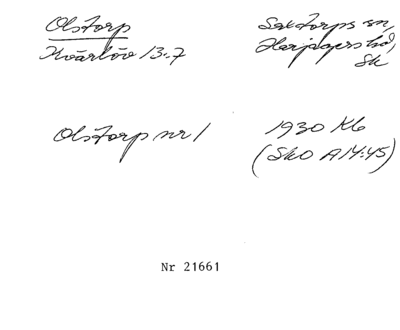 Olstorp
Kvärlöv 13:7
Saxtorps sn,
Harjagers hd,
Sk
Olstorp nr 1
1930 Kb
(SkO A14:45)
Nr 21661